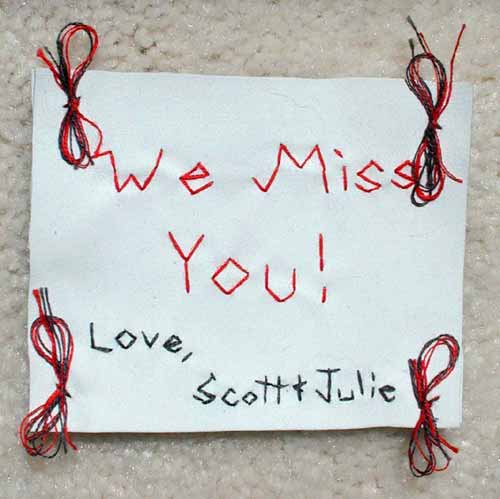 We Miss
You!
Love,
Scott & Julie